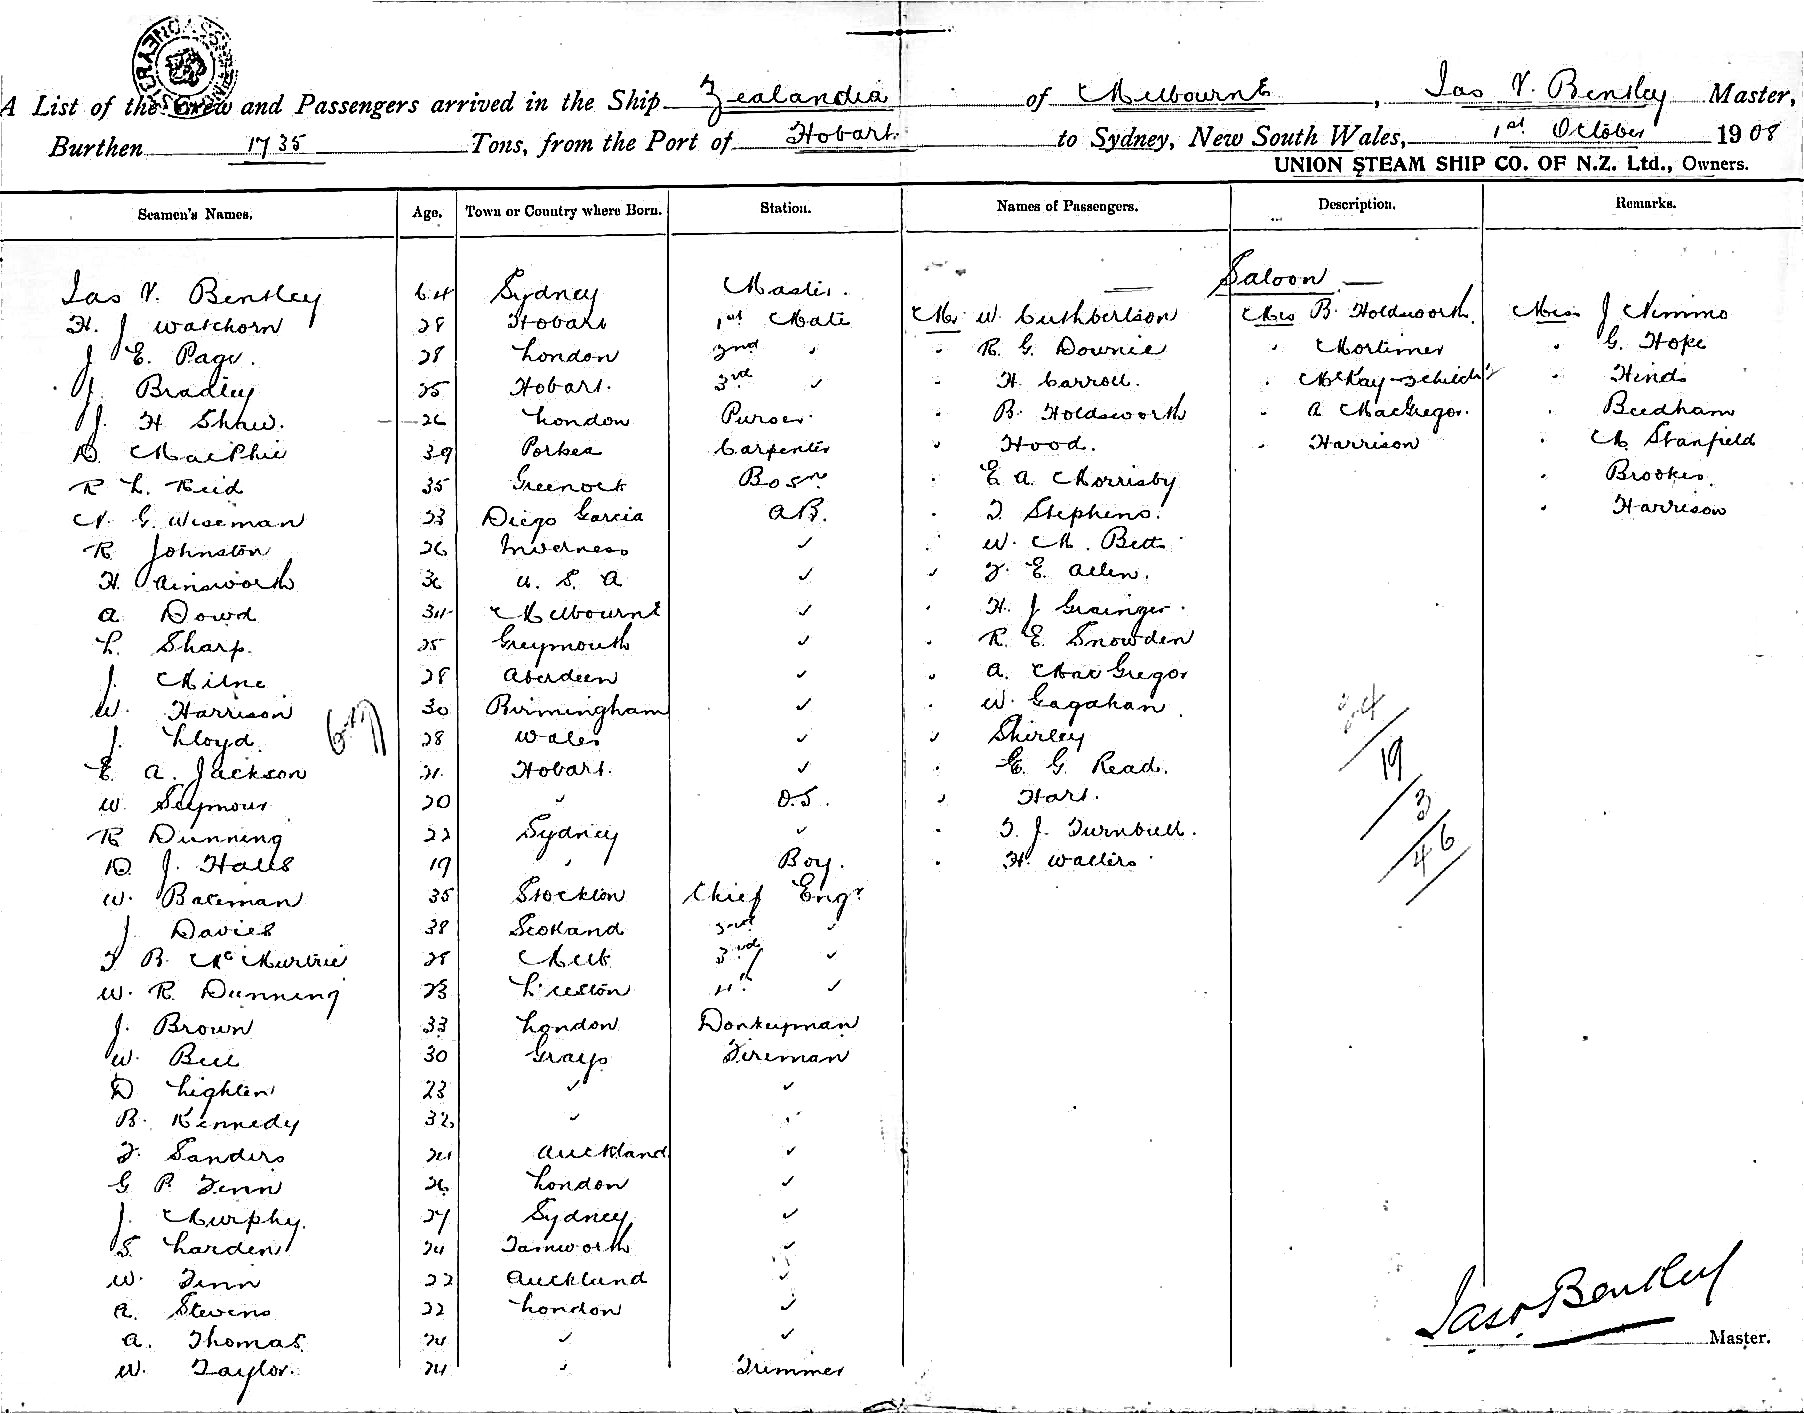 A List of the Crew and Passengers arrived in the Ship Zealandia of Melbourne, Jas V. Bentley Master,
Burthen 1735 Tons, from the Port of Hobart to Sydney, New South Wales, 1st October 1908
UNION STEAM SHIP CO. OF N.Z. Ltd., Owners.
Seamen's Names. Age. Town or Country where Born. Station. Names of Passengers. Description. Remarks.
Saloon
Jas V. Bentley 64 Sydney Master.
H. J Watchorn 28 Hobart 1st Mate Mr W. Cuthbertson Mrs B. Holdsworth Miss J Nimmo
J E. Page. 28 London 2nd " " R. G. Downie " Mortimer " G. Hope
J. Bradley 25 Hobart. 3rd " " H. Carroll. " McKay " Hinds
J. H Shaw. 26 London Purser. " B. Holdsworth " A MacGregor. " Beedham
D. MacPhie 39 Carpenter " Hood. " Harrison " M Stanfield
R L. Reid 35 Greenock Bosn " E A. Morrisby " Brookes.
N. G. Wiseman 23 Diego Garcia AB. " T. Stephens. " Harrison
R Johnston 26 Inverness " " W. M. Betts
H. Ainsworth U. S. A " " F. E. Allen.
A Dowd 34 Melbourne " " H. J Grainger.
L. Sharp. 25 Greymouth " " R. E. Snowden
J. Milne 28 Aberdeen " " A. MacGregor
W. Harrison 30 Birmingham " " W. Gagahan
J. Lloyd. 28 Wales " " Shirley
E. A. Jackson 21. Hobart. " " E. G. Read.
W. Seymour 20 " O.S. " Hart.
R Dunning 22 Sydney " " T. J. Turnbull.
D. J. Halls 19 " Boy. " H. Walters
W. Bateman 35 Stockton Chief Engr
J Davies 38 Scotland 2nd "
T B. McMurtrie 28 Melb 3rd "
W. R. Dunning 23 4th "
J. Brown 33 London Donkeyman
W. Bell 30 Grays Fireman
D Lighten 23 " "
B. Kennedy 32 " "
F. Sanders 24 Auckland "
G P. Fenn 26 London "
J. Murphy. 27 Sydney "
S. Larden 24 Tamworth "
W. Fenn 22 Auckland "
A. Stevens 22 London "
A. Thomas 24 " "
W. Taylor. 24 " Trimmer
34
19
3
46
Jas V Bentley
Master.